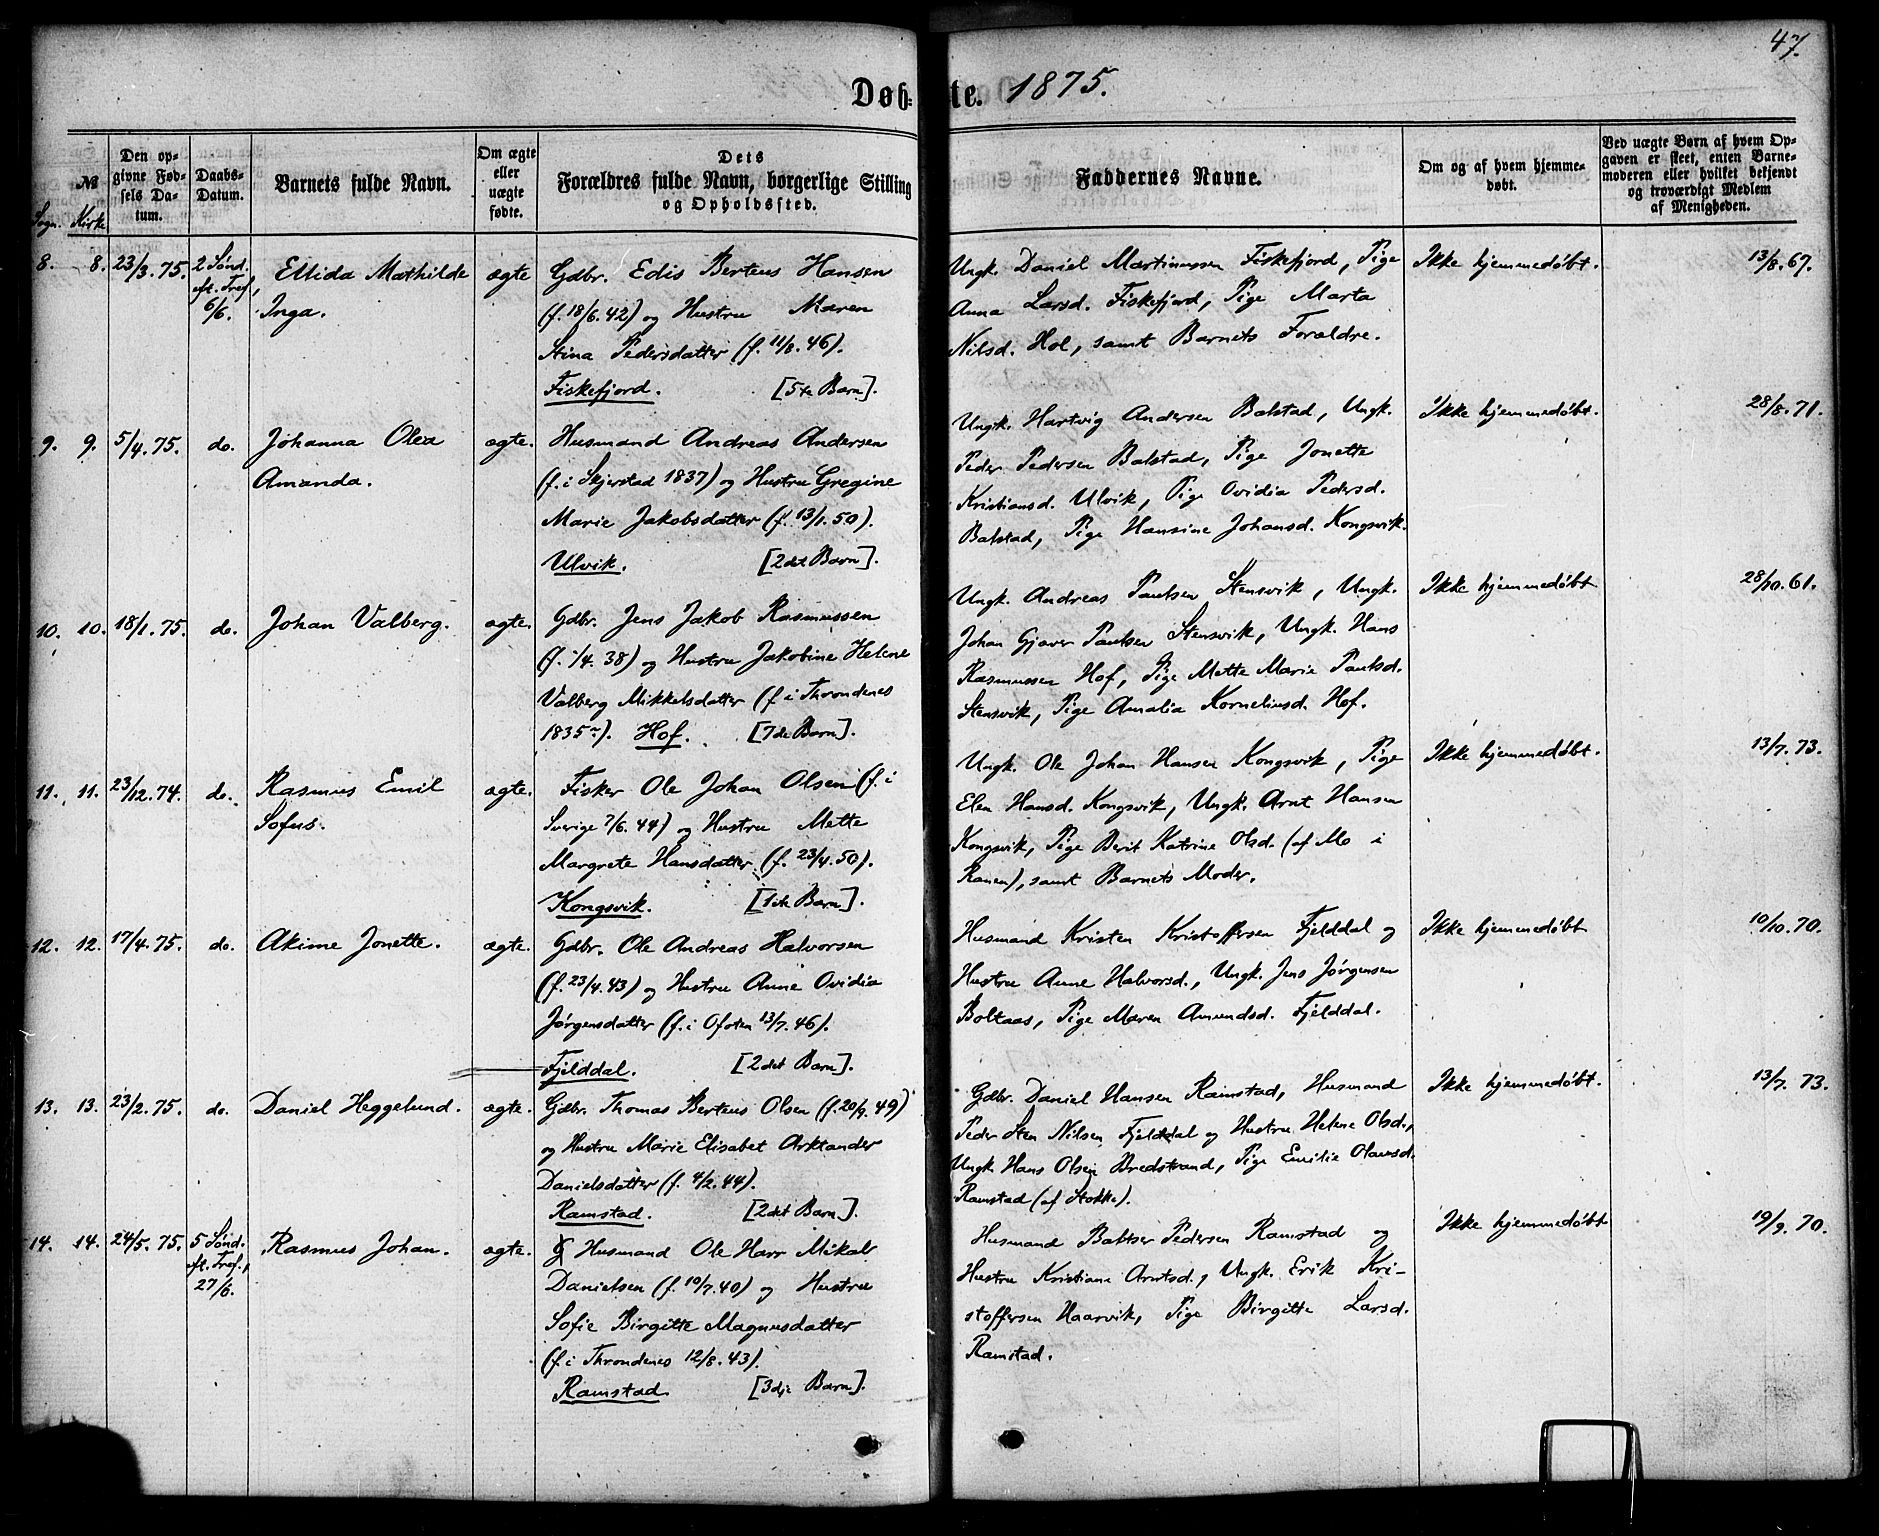 47.
Døbte. 1875.
№
Sogn. Kirke
Den opgivne Fødsels Datum.
Daabs-Datum.
Barnets fulde Navn.
Om ægte eller uægte fødte.
Dets Forældres fulde Navn, borgerlige Stilling og Opholdssted.
Faddernes Navne.
Om og af hvem hjemmedøbt.
Ved uægte Børn af hvem Opgaven er skeet, enten Barnemoderen eller hvilket bekjendt og troværdigt Medlem af Menigheden.
8. 8. 23/3. 75. 2 Sønd. eft. Tref, 6/6.
Ellida Mathilde
Inga.
ægte
Gdbr. Edis Berteus Hansen
(f. 18/6. 42) og Hustru Maren
Stina Pedersdatter (f. 11/8. 46).
Fiskefjord. [5te Barn].
Ungk. Daniel Martinussen Fiskefjord, Pige
Anna Larsd. Fiskefjord, Pige Marta
Nilsd. Hol, samt Barnets Forældre.
Ikke hjemmedøbt.
13/8. 67.
9. 9. 5/4. 75. do.
Johanna Olea
Amanda.
ægte.
Husmand Andreas Andersen
(f. i Skjerstad 1837) og Hustru Gregine
Marie Jakobsdatter (f. 13/1. 50).
Ulvik. [2det Barn].
Ungk. Hartvig Andersen Balstad, Ungk.
Peder Pedersen Balstad, Pige Jonette
Kristiansd. Ulvik, Pige Ovidia Pedersd.
Balstad, Pige Hansine Johansd. Kongsvik.
Ikke hjemmedøbt.
28/8. 71.
10. 10. 18/1. 75. do.
Johan Valberg.
ægte.
Gdbr. Jens Jakob Rasmussen
(f. 1/4. 38) og Hustru Jakobine Helene
Valberg Mikkelsdatter (f i Throndenes
1835). Hof. [7de Barn].
Ungk. Andreas Paulsen Stensvik, Ungk.
Johan Gjæver Paulsen Stensvik, Ungk. Hans
Rasmussen Hof, Pige Mette Marie Paulsd.
Stensvik, Pige Amalia Korneliusd. Hof.
Ikke hjemmedøbt
28/10. 61.
11. 11. 23/12. 74. do.
Rasmus Emil
Sofus.
ægte.
Fisker Ole Johan Olsen (f. i
Sverige 7/6. 44) og Hustru Mette
Margrete Hansdatter (f. 23/4. 50).
Kongsvik. [1ste Barn].
Ungk. Ole Johan Hansen Kongsvik, Pige
Elen Hansd. Kongsvik, Ungk. Arnt Hansen
Kongsvik, Pige Berit Katrine Olsd. (af Mo i
Ranen), samt Barnets Moder.
Ikke hjemmedøbt.
13/7. 73.
12. 12. 17/4. 75. do.
Akime Jonette.
ægte.
Gdbr. Ole Andreas Halvorsen
(f. 23/4. 43) og Hustru Anne Ovidia
Jørgensdatter (f. i Ofoten 13/7. 46).
Fjelddal. [2det Barn].
Husmand Kristen Kristoffersen Fjelddal og
Hustru Anne Halvorsd., Ungk. Jens Jørgensen
Boltaas, Pige Maren Amundsd. Fjelddal.
Ikke hjemmedøbt
10/10. 70.
13. 13. 23/2. 75. do.
Daniel Heggelund.
ægte.
Gdbr. Thomas Berteus Olsen (f. 20/9. 49)
og Hustru Marie Elisabet Arktander
Danielsdatter (f. 4/2. 44).
Ramstad. [2det Barn].
Gdbr. Daniel Hansen Ramstad, Husmand
Peder Sten Nilsen Fjelddal og Hustru Helene Olsd.,
Ungk Hans Olsen Bredstrand, Pige Emilie Olausd.
Ramstad (af Stokke).
Ikke hjemmedøbt.
13/7. 73.
14. 14. 24/5. 75. 5 Sønd. eft. Tref., 27/6.
Rasmus Johan.
ægte.
Husmand Ole Harr Mikal
Danielsen (f. 10/7. 40) og Hustru
Sofie Birgitte Magnusdatter
(f. i Throndenes 12/8. 43).
Ramstad [3dje Barn].
Husmand Baltser Pedersen Ramstad og
Hustru Kristiane Arntsd., Ungk. Erik Kri-
stoffersen Haarvik, Pige Birgitte Larsd.
Ramstad.
Ikke hjemmedøbt
19/9. 70.